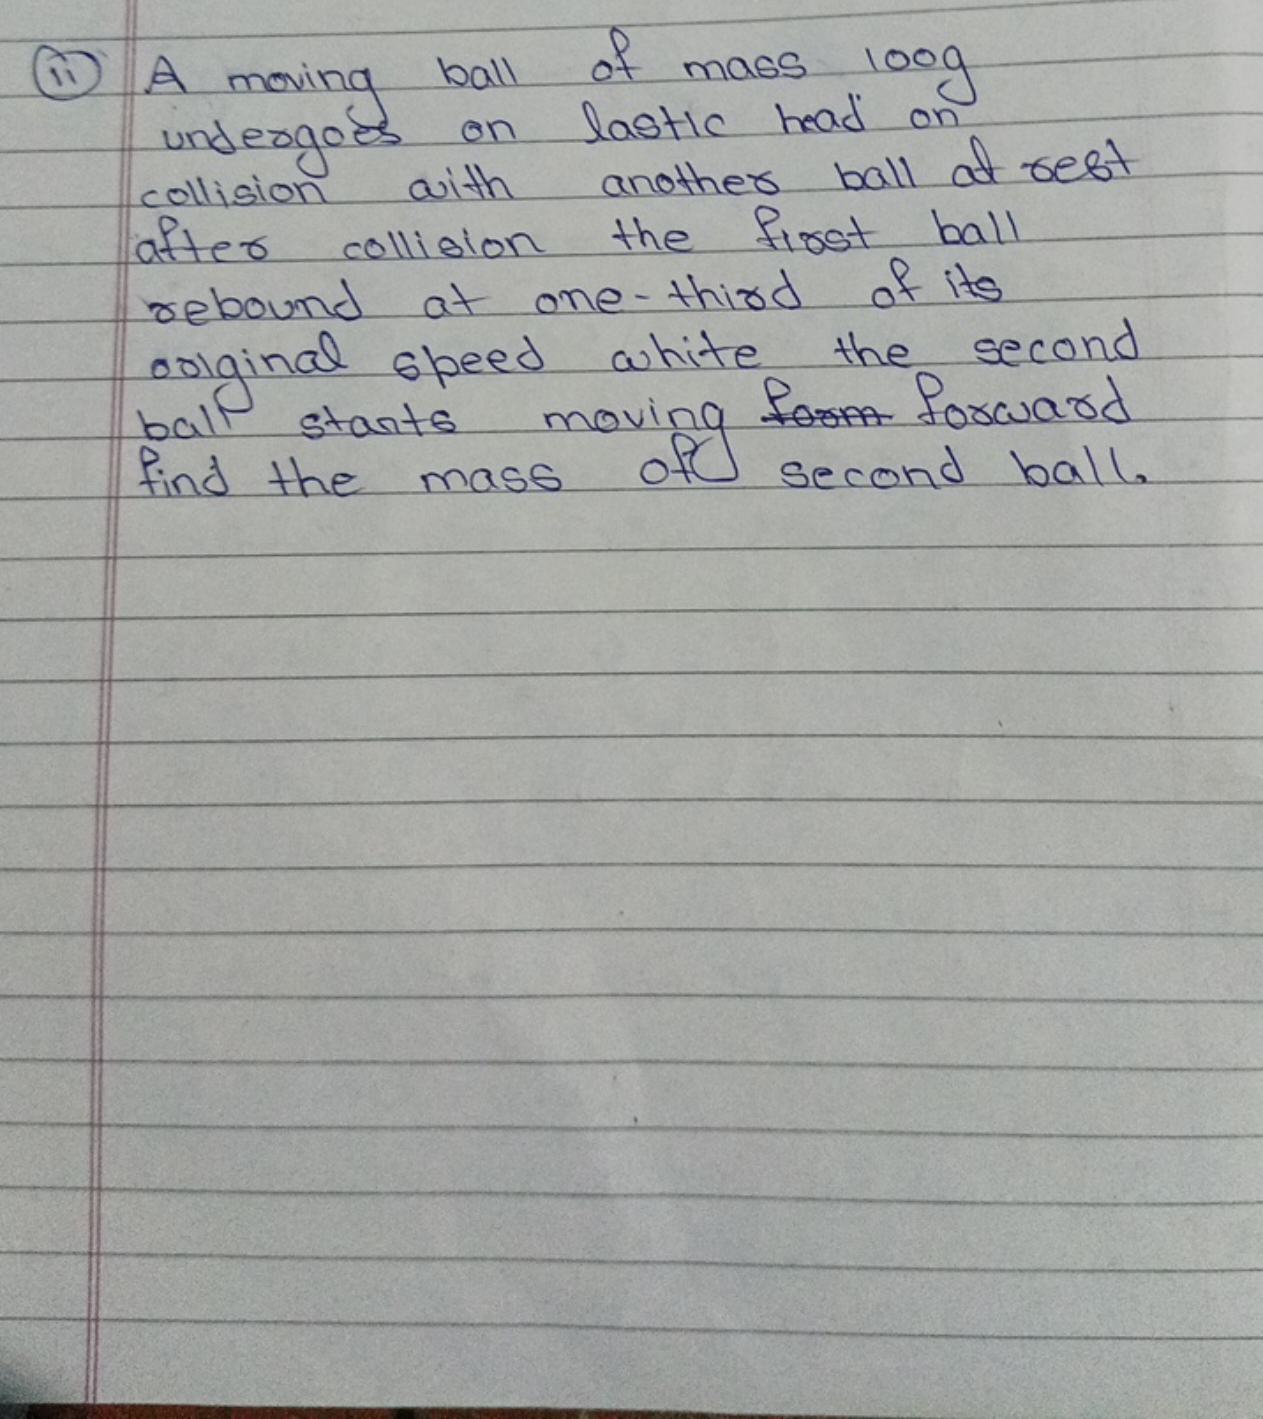 (ii) A moving ball of mass 100g
undergoes on lastic head on
collision with another ball at rest
after collision the first ball
rebound at one-third of its
original speed white the second
ball starts moving form forward
find the mass of second ball.